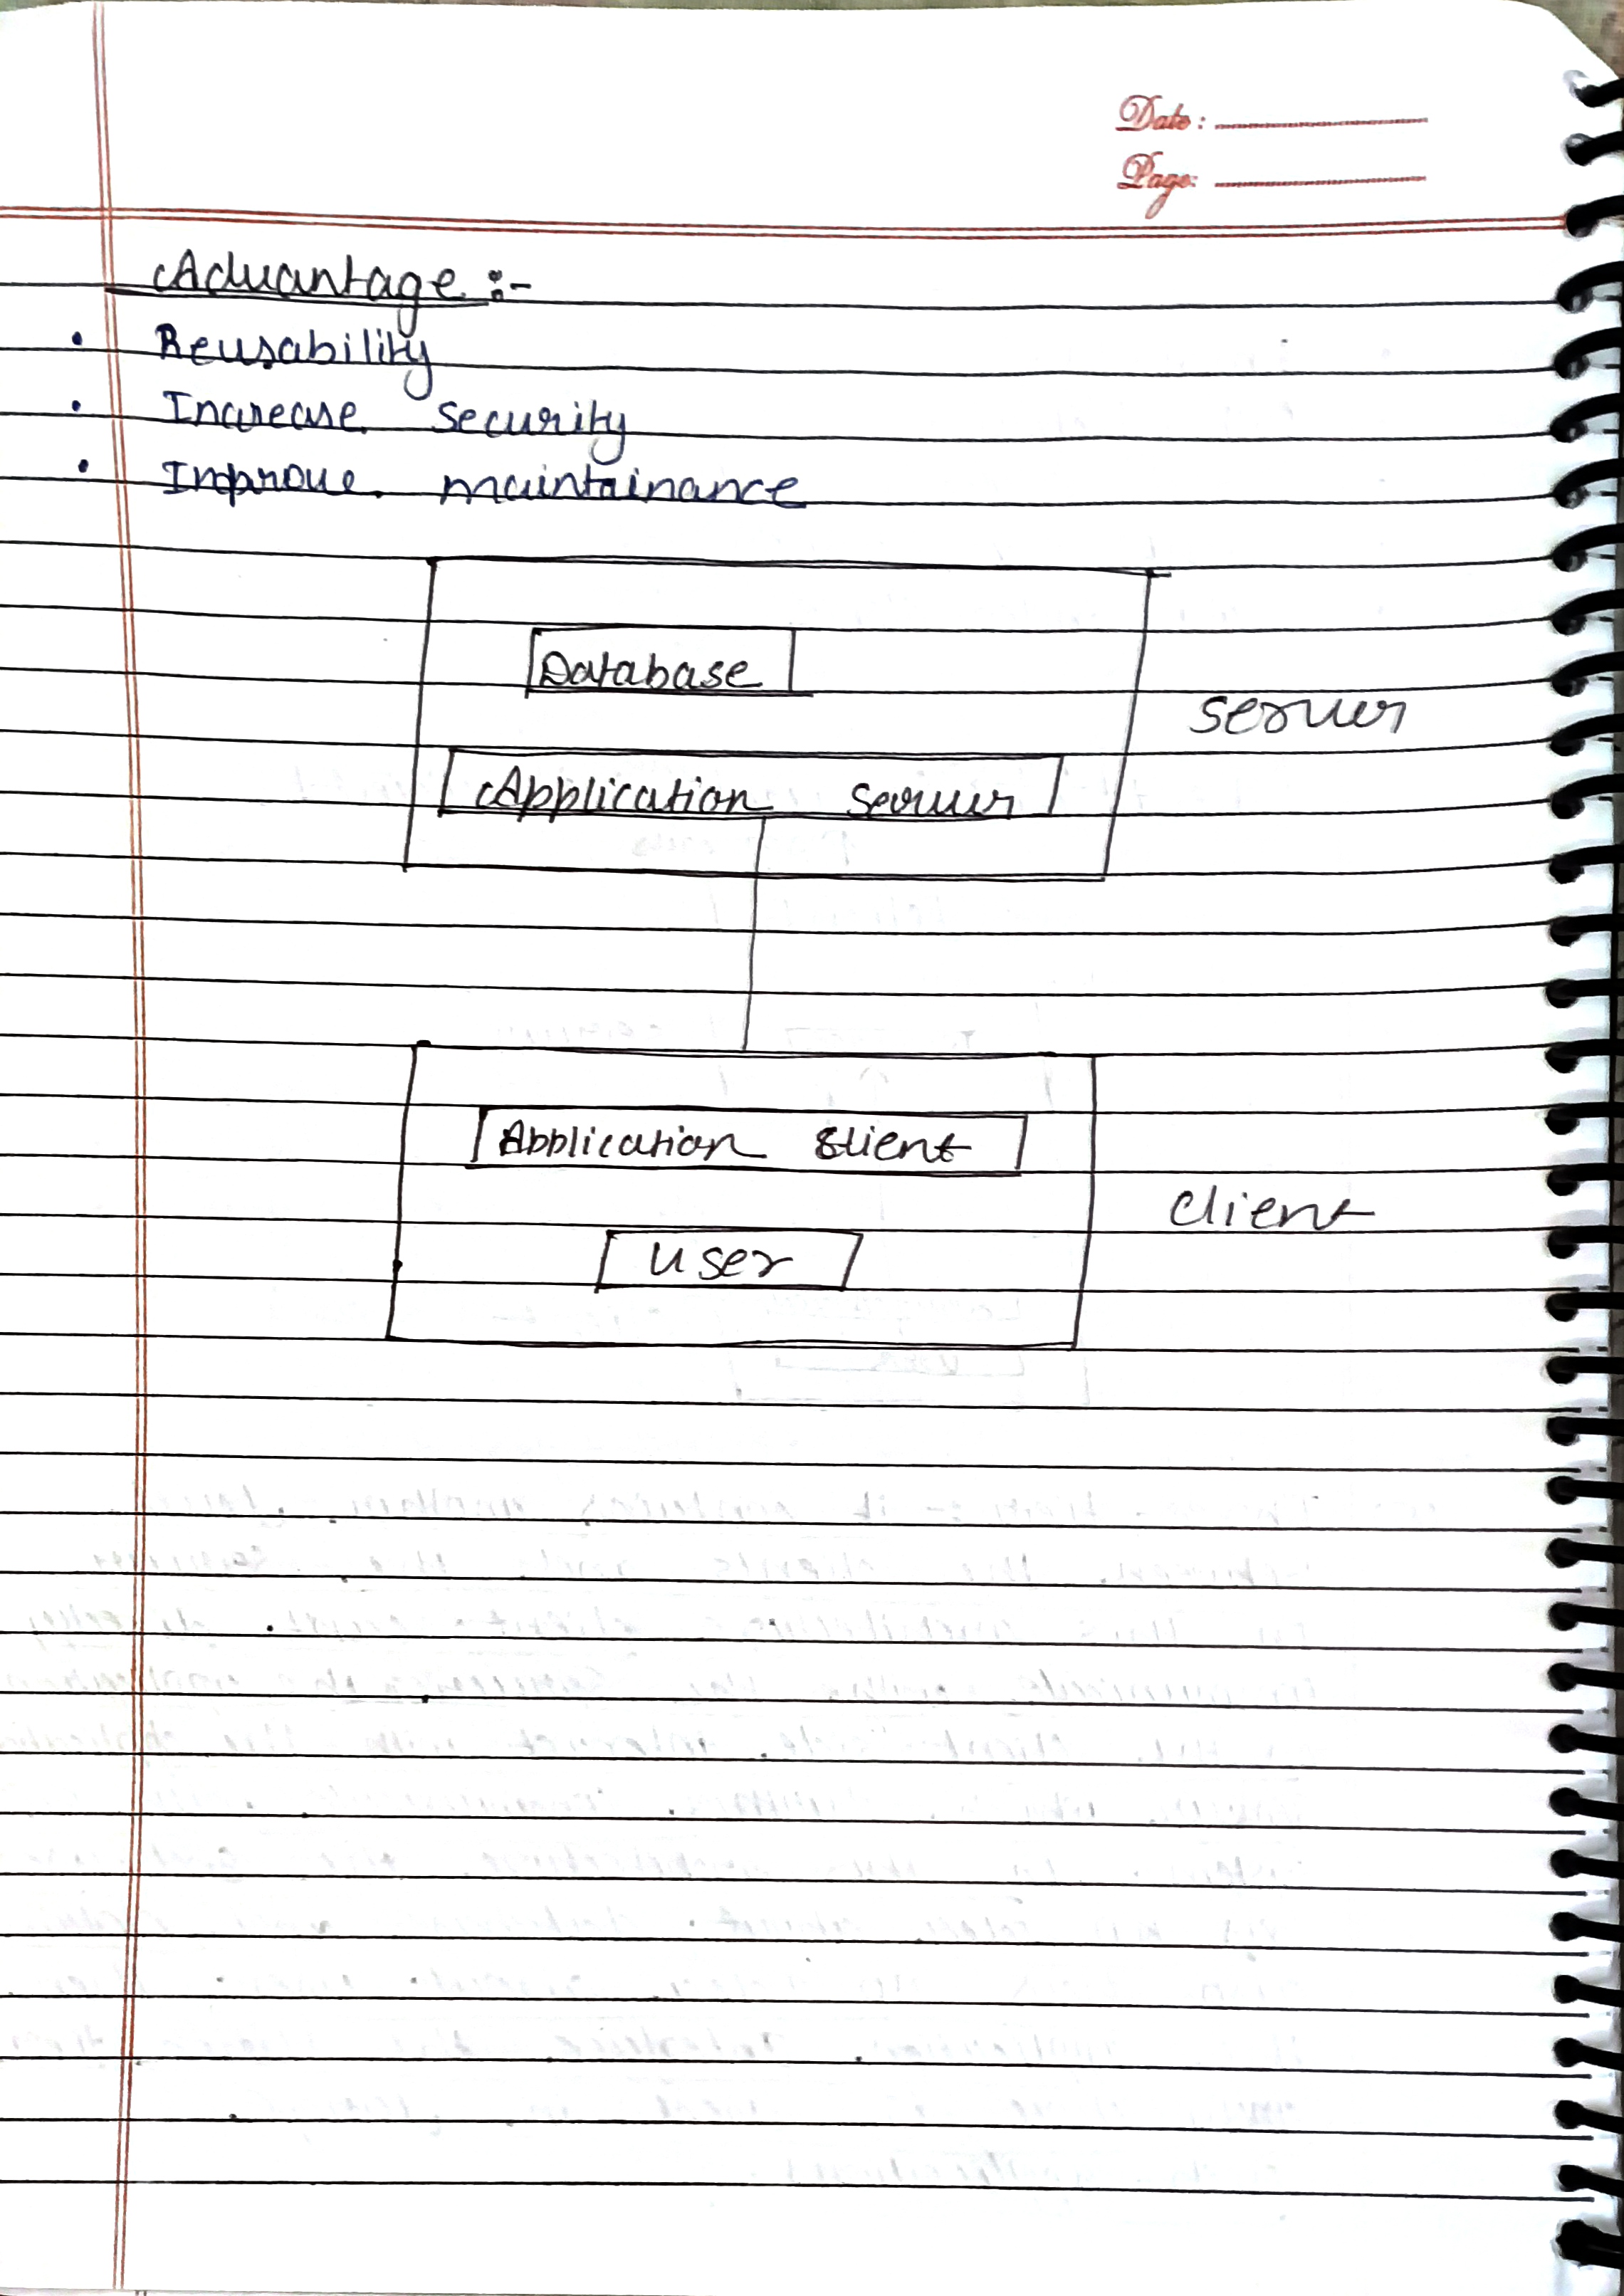 Date:
Page:
Advantage :-
• Reusability
• Increase security
• Improve maintainance
Database
Server
Application Server
Application Client
Client
User